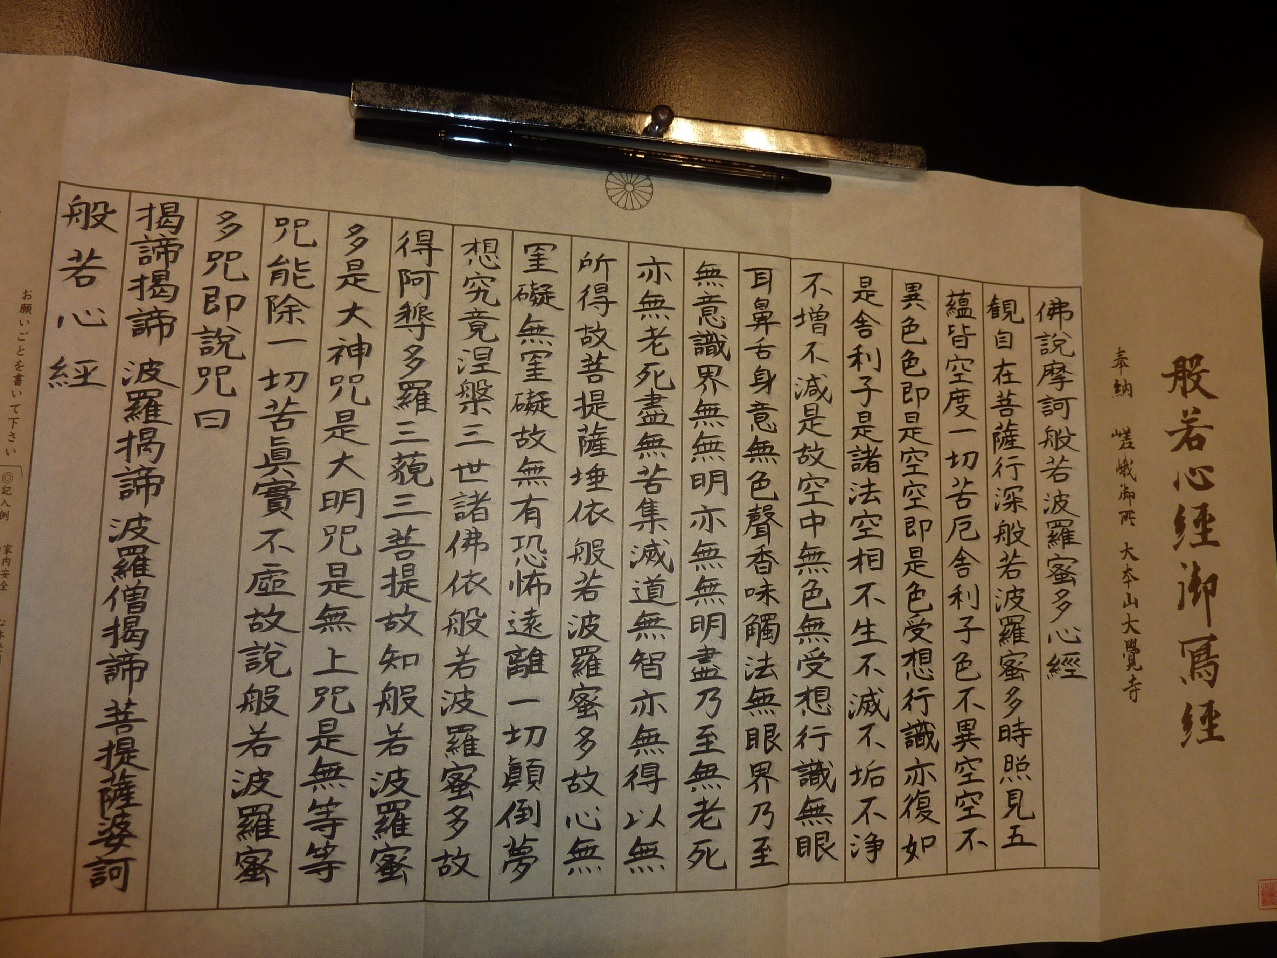 般若心経御冩経
奉納 嵯峨御所 大本山大覺寺
佛說摩訶般若波羅蜜多心經
觀自在菩薩行深般若波羅蜜多時照見五
蘊皆空度一切苦厄舎利子色不異空空不
異色色即是空空即是色受想行識亦復如
是舎利子是諸法空相不生不滅不垢不浄
不增不減是故空中無色無受想行識無眼
耳鼻舌身意無色聲香味觸法無眼界乃至
無意識界無無明亦無無明盡乃至無老死
亦無老死盡無苦集滅道無智亦無得以無
所得故菩提薩埵依般若波羅蜜多故心無
罣礙無罣礙故無有恐怖遠離一切顛倒夢
想究竟涅槃三世諸佛依般若波羅蜜多故
得阿耨多羅三藐三菩提故知般若波羅蜜
多是大神咒是大明咒是無上咒是無等等
咒能除一切苦眞實不虛故說般若波羅蜜
多咒即說咒曰
揭諦揭諦 波羅揭諦 波羅僧揭諦 菩提薩婆訶
般若心經
お願いごとを書いて下さい
◎記入例 家内安全